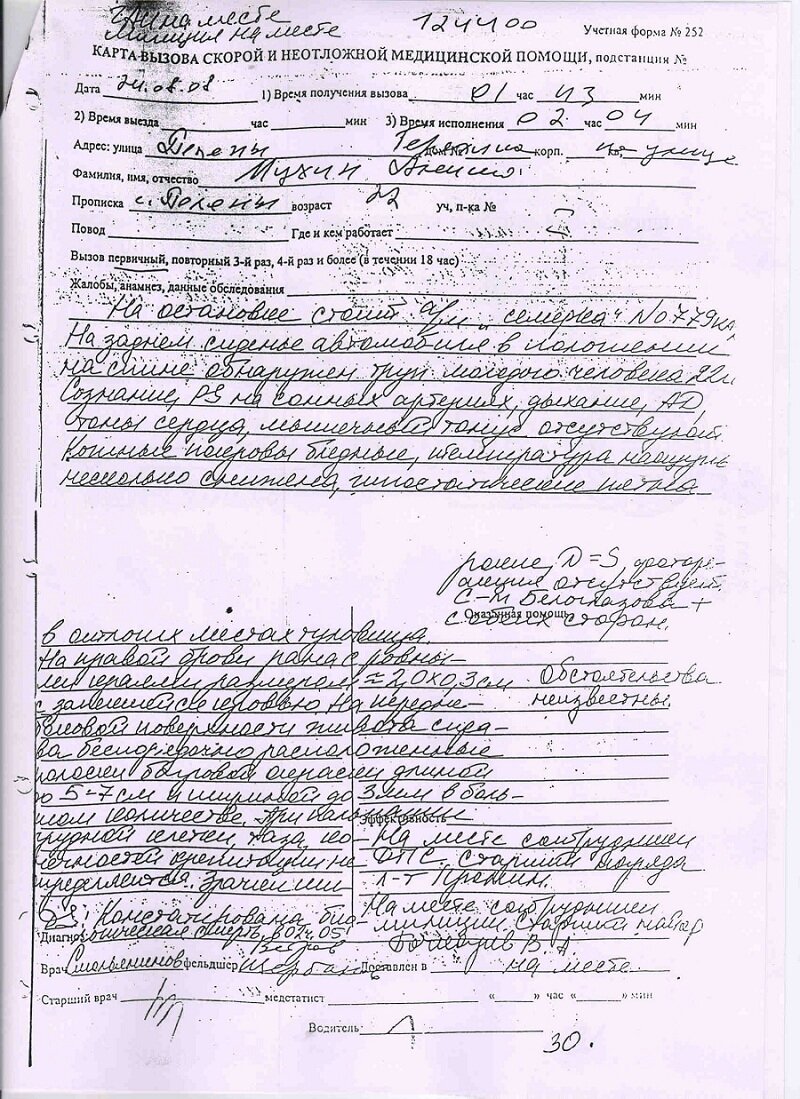 ГАИ на месте
Милиция на месте
124400
Учетная форма № 252
КАРТА ВЫЗОВА СКОРОЙ И НЕОТЛОЖНОЙ МЕДИЦИНСКОЙ ПОМОЩИ, подстанция №
Дата 24.08.08 1) Время получения вызова 01 час 43 мин
2) Время выезда час мин 3) Время исполнения 02 час 04 мин
Адрес: улица дом № корп. кв. на улице
Фамилия, имя, отчество Мухин
Прописка возраст 22 уч, п-ка №
Повод Где и кем работает
Вызов первичный, повторный 3-й раз, 4-й раз и более (в течении 18 час)
Жалобы, анамнез, данные обследования
На остановке стоит а/м „семерка“ No 779
На заднем сиденье автомобиля в положении
на спине обнаружен труп молодого человека 22л
Сознание, PS на сонных артериях, дыхание, АД,
тоны сердца, мышечный тонус отсутствуют.
Кожные покровы бледные, температура наощупь
несколько снижена, гипостатические пятна
рокие, D=S, фоторе-
акция отсутствует.
С-м Белоглазова +
Оказанная помощь
с обеих сторон.
в отлогих местах туловища.
На правой брови рана с ровны-
ми краями размером ≈ 2,0х0,3см Обстоятельства
с запекшейся кровью. На передне- неизвестны.
боковой поверхности живота спра-
ва беспорядочно расположенные
полоски багровой окраски длиной
до 5-7 см и шириной до 3мм в боль-
шом количестве. При пальпации
Эффективность
грудной клетки, таза, ко- На месте сотрудники
нечностей крепитации не ДПС. Старший наряда
определяется. Зрачки ши- л-т
DS: Констатирована био- На месте сотрудники
Диагноз логическая смерть в 02ч.05 милиции, старший майор
В.А
Врач Смольянинов фельдшер Доставлен в на месте
Старший врач медстатист «     » час «     » мин
Водитель
30.